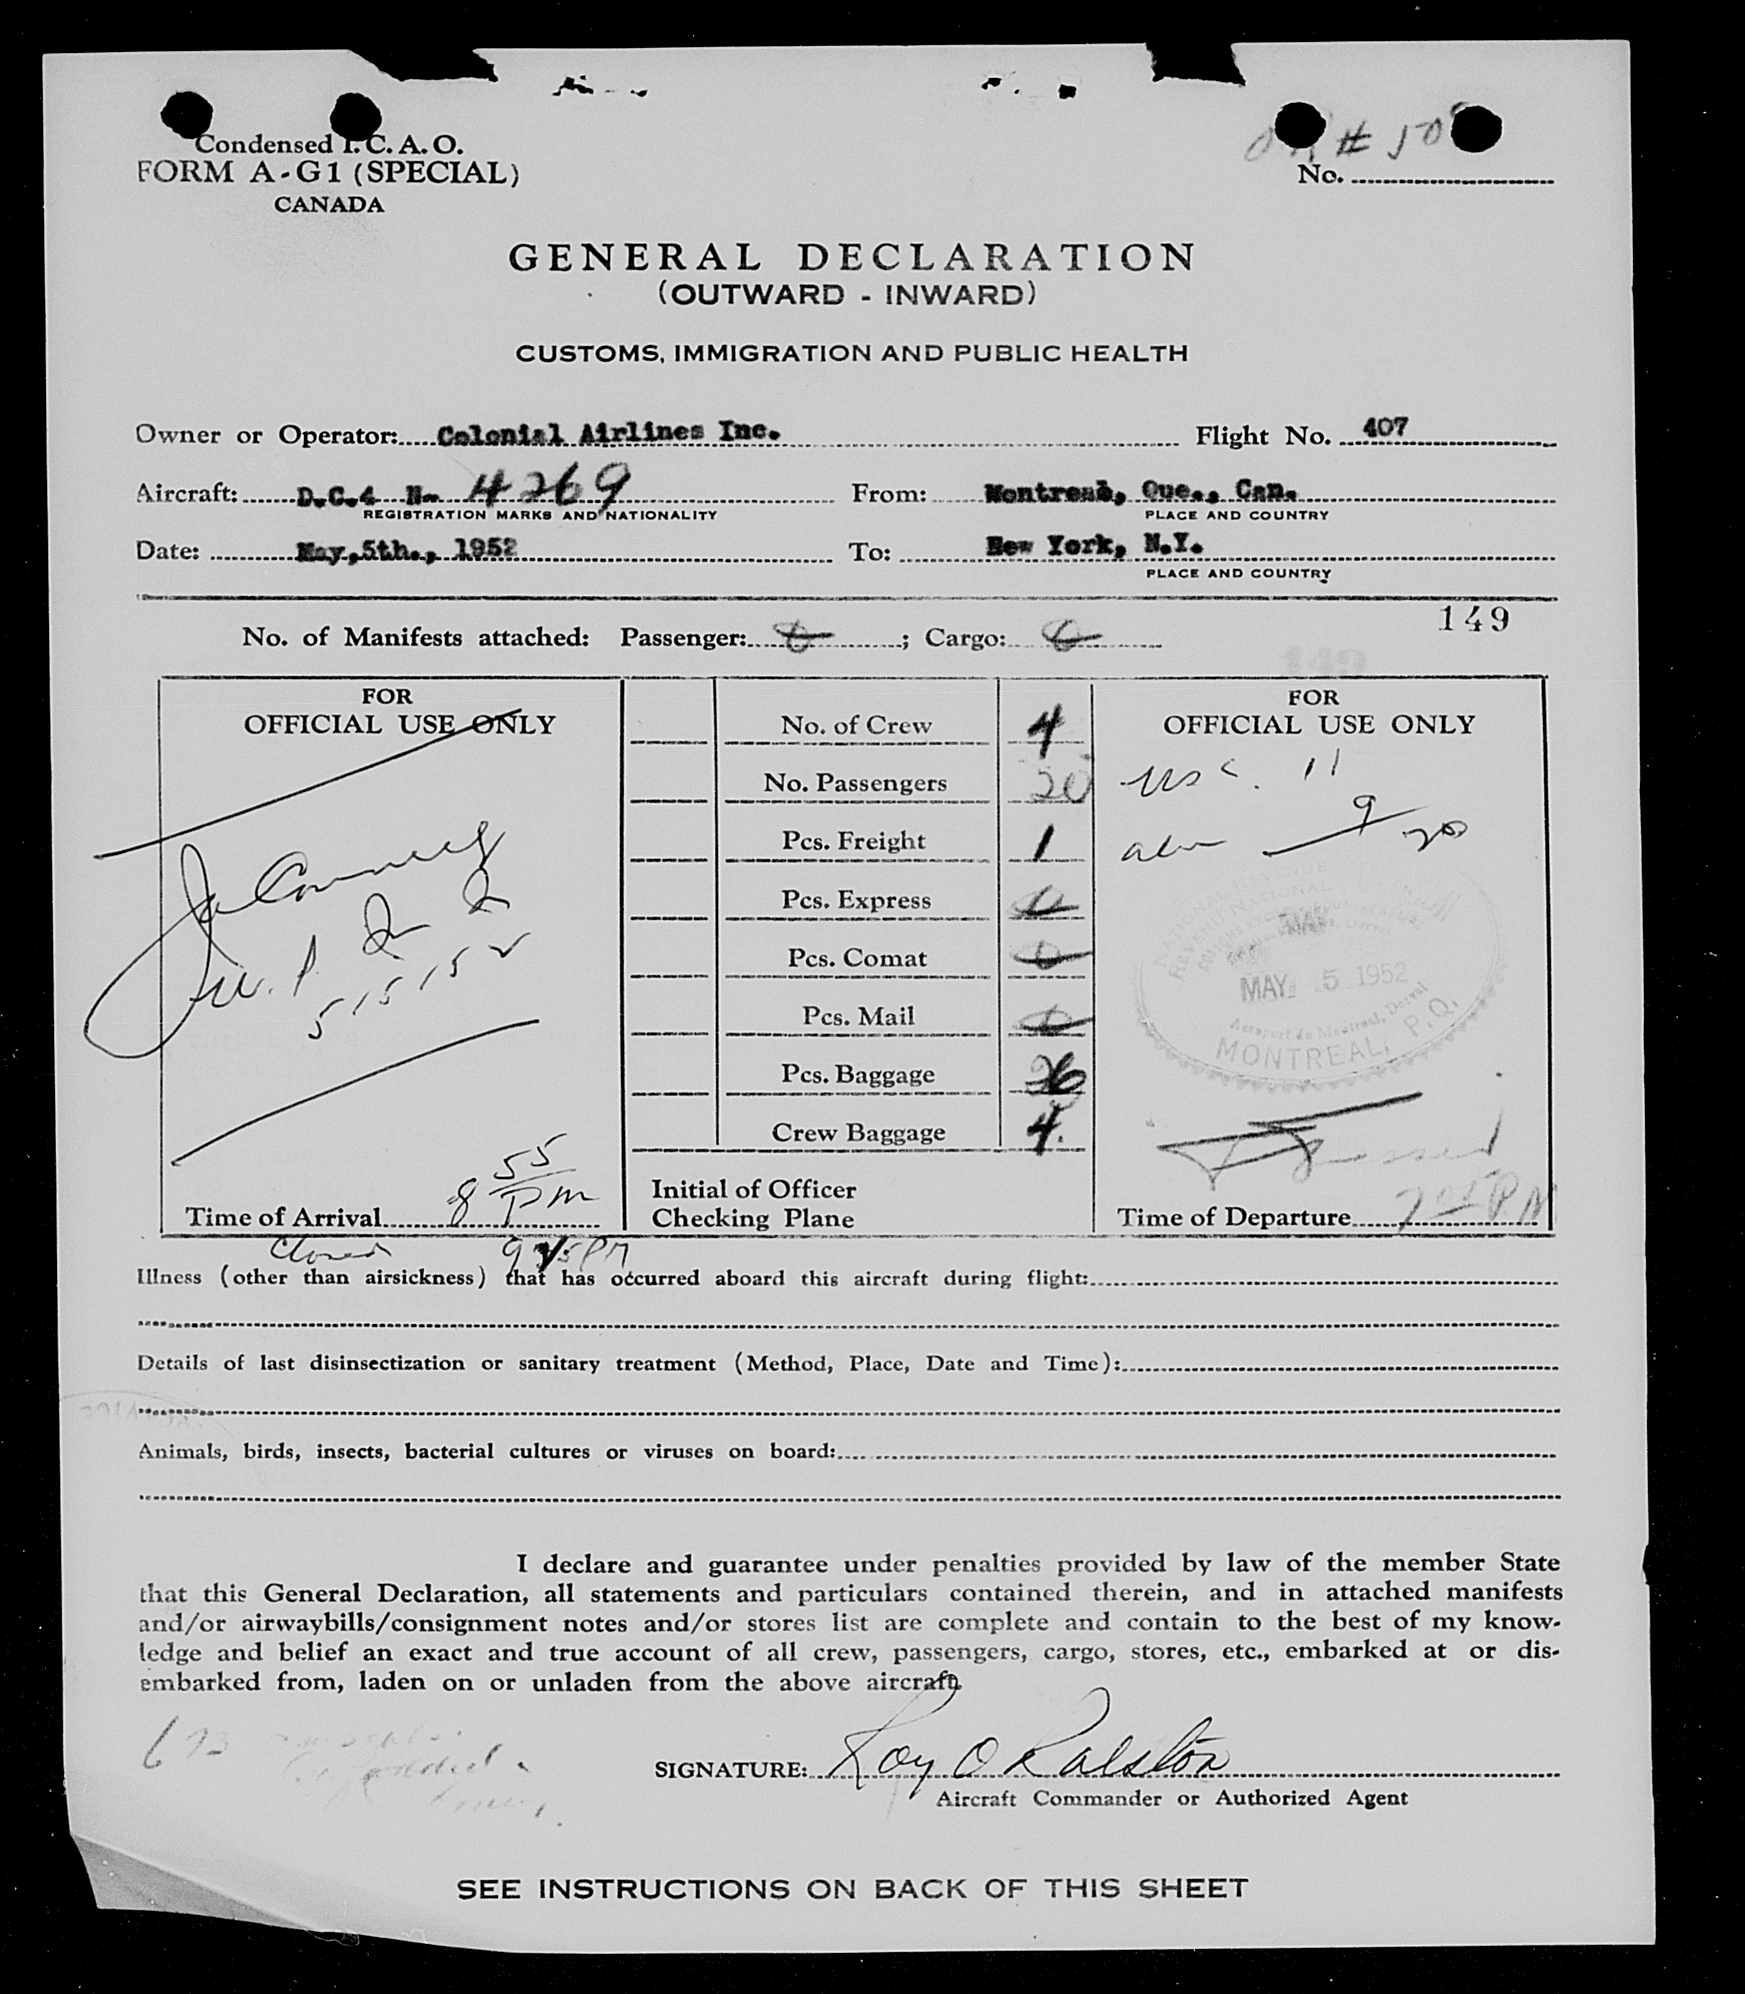 Condensed I. C. A. O.
FORM A-G1 (SPECIAL)
CANADA
No.
GENERAL DECLARATION
(OUTWARD - INWARD)
CUSTOMS, IMMIGRATION AND PUBLIC HEALTH
Owner or Operator: Colonial Airlines Inc. Flight No. 407
Aircraft: D.C.4 N- 4269 From: Montreal, Que., Can.
REGISTRATION MARKS AND NATIONALITY PLACE AND COUNTRY
Date: May,5th., 1952 To: New York, N.Y.
PLACE AND COUNTRY
149
No. of Manifests attached: Passenger: 0 ; Cargo: 0
FOR
OFFICIAL USE ONLY
5/5/52
Time of Arrival 8 55 PM
No. of Crew 4
No. Passengers 20
Pcs. Freight 1
Pcs. Express 0
Pcs. Comat 0
Pcs. Mail 0
Pcs. Baggage 26
Crew Baggage 4.
Initial of Officer
Checking Plane
FOR
OFFICIAL USE ONLY
USC. 11
9
20
MAY 5 1952
Aeroport de Montreal, Dorval
MONTREAL, P.Q.
Time of Departure PM
Closed
Illness (other than airsickness) that has occurred aboard this aircraft during flight:
Details of last disinsectization or sanitary treatment (Method, Place, Date and Time):
Animals, birds, insects, bacterial cultures or viruses on board:
I declare and guarantee under penalties provided by law of the member State
that this General Declaration, all statements and particulars contained therein, and in attached manifests
and/or airwaybills/consignment notes and/or stores list are complete and contain to the best of my know-
ledge and belief an exact and true account of all crew, passengers, cargo, stores, etc., embarked at or dis-
embarked from, laden on or unladen from the above aircraft.
SIGNATURE: Roy O Ralston
Aircraft Commander or Authorized Agent
SEE INSTRUCTIONS ON BACK OF THIS SHEET